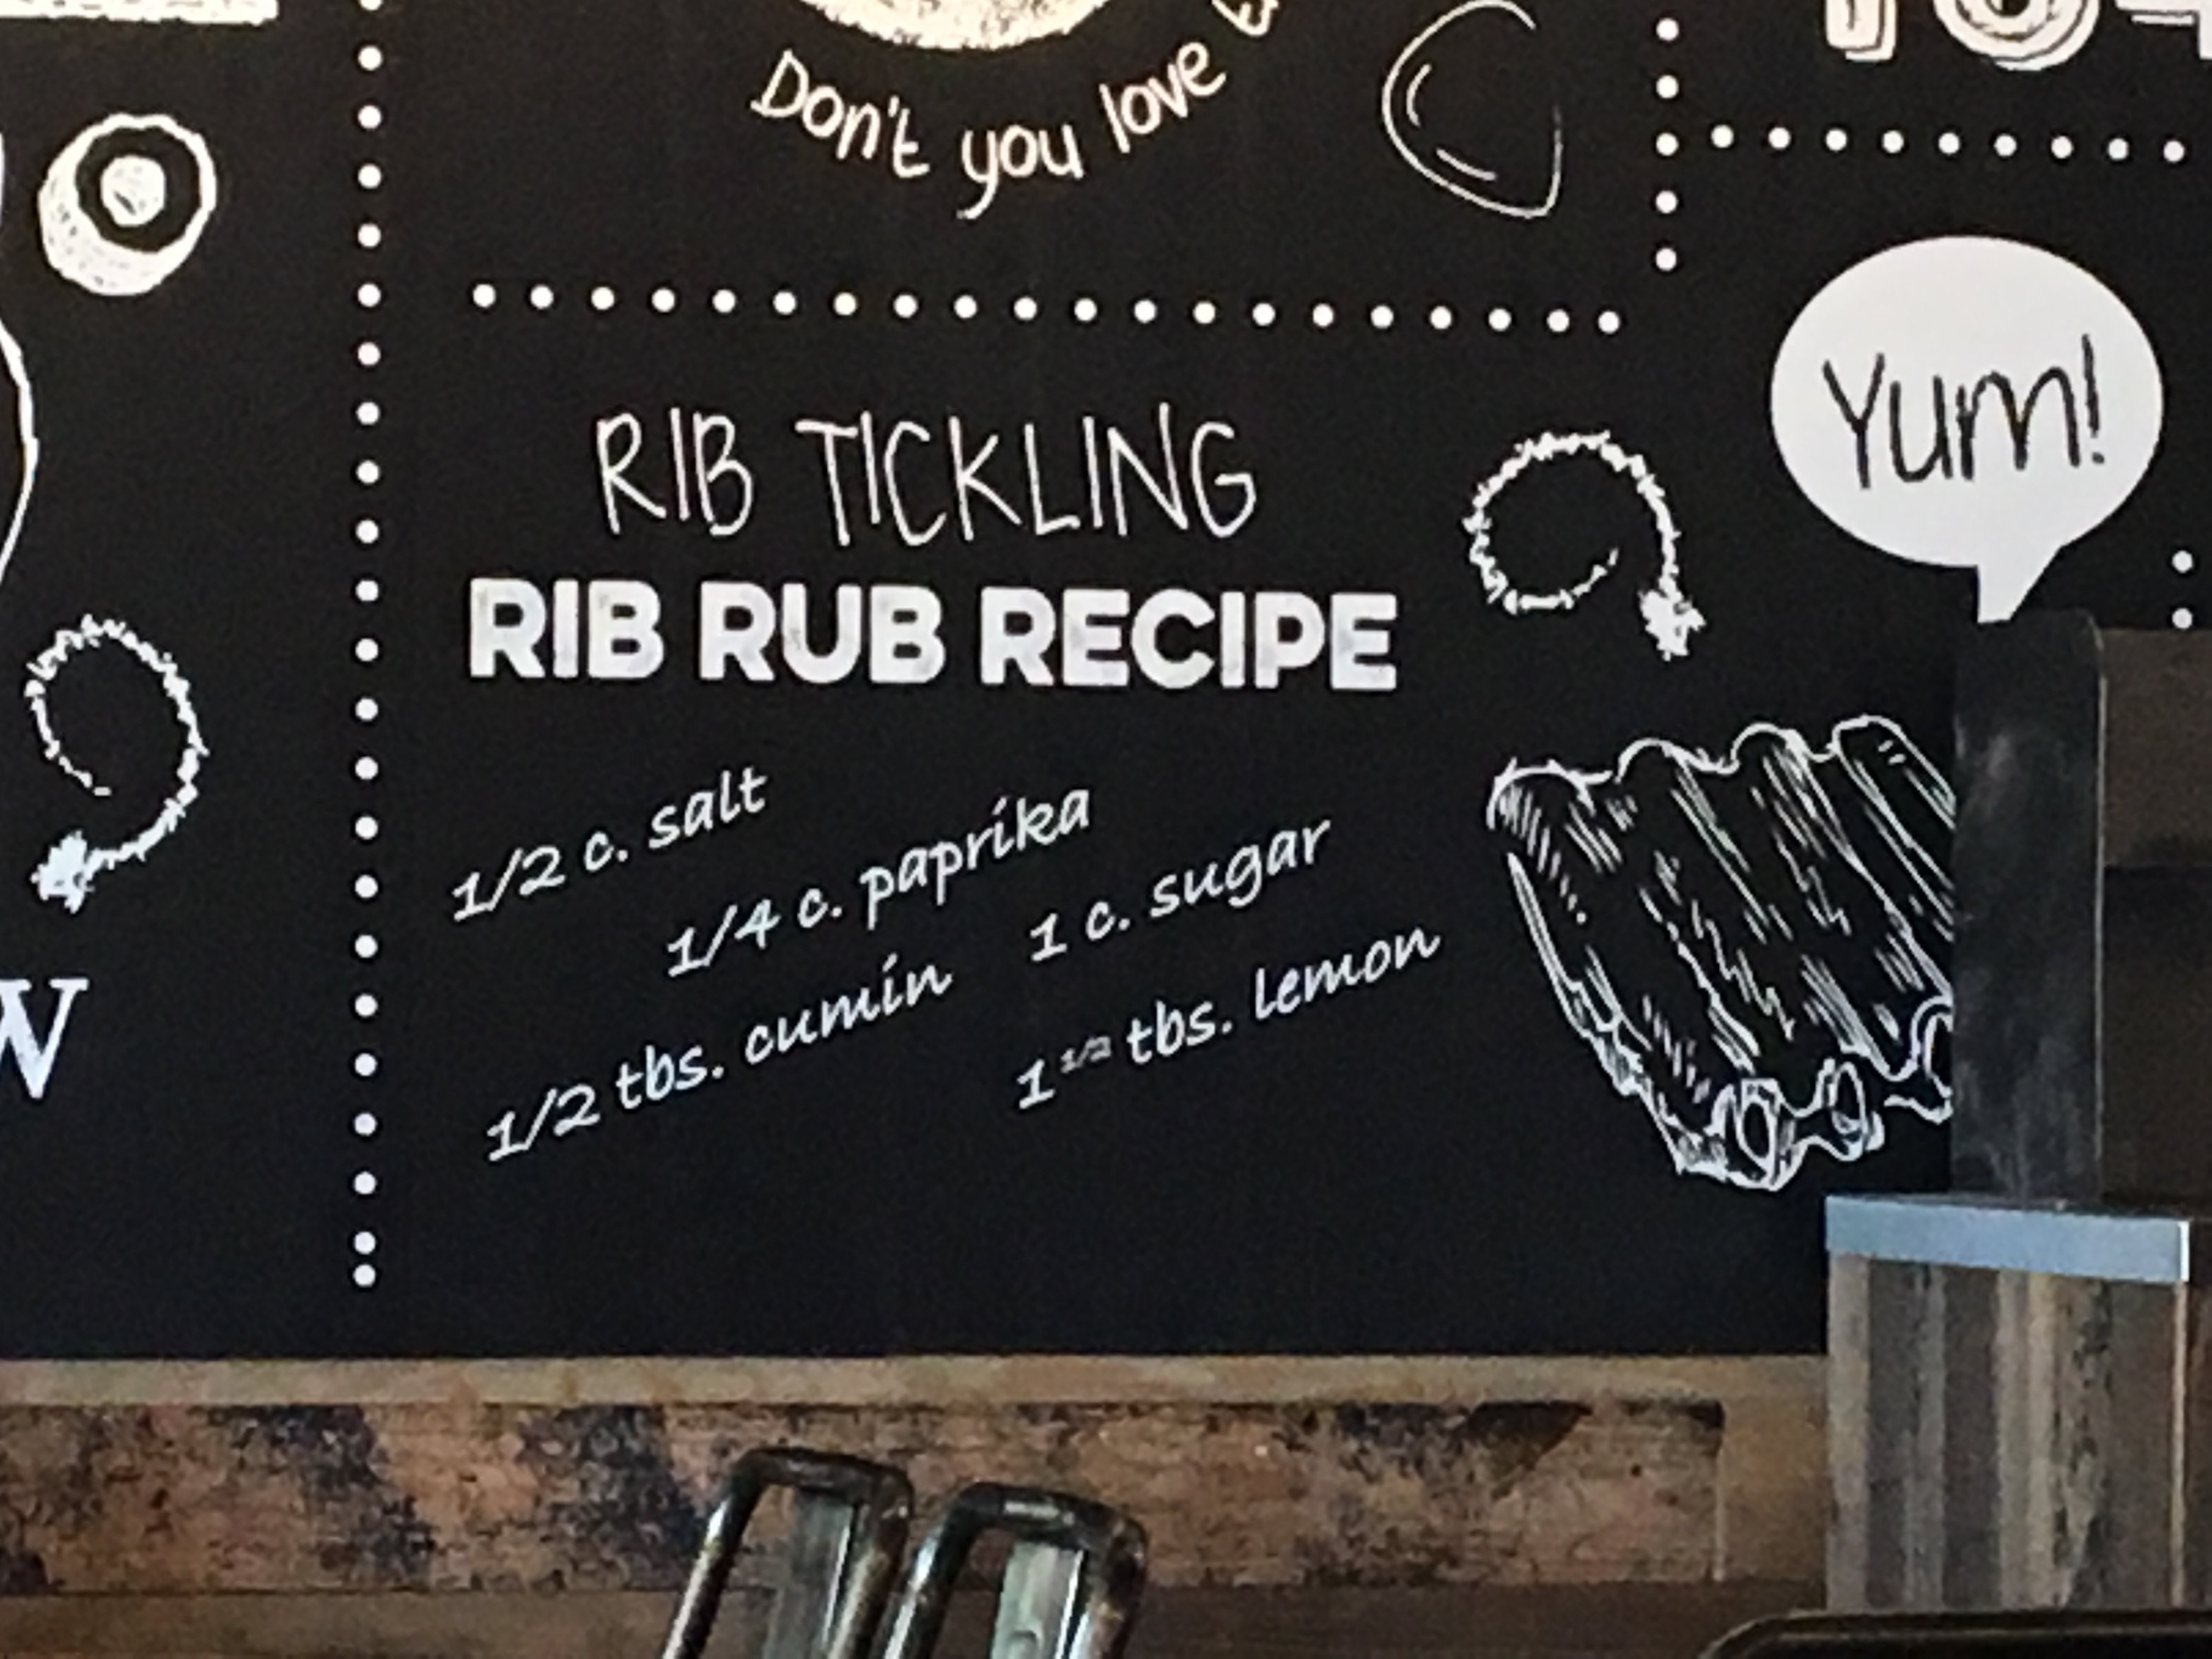 Don't you love
RIB TICKLING
RIB RUB RECIPE
1/2 c. salt
1/4 c. paprika
1 c. sugar
1/2 tbs. cumin
1 1/2 tbs. lemon
Yum!
W